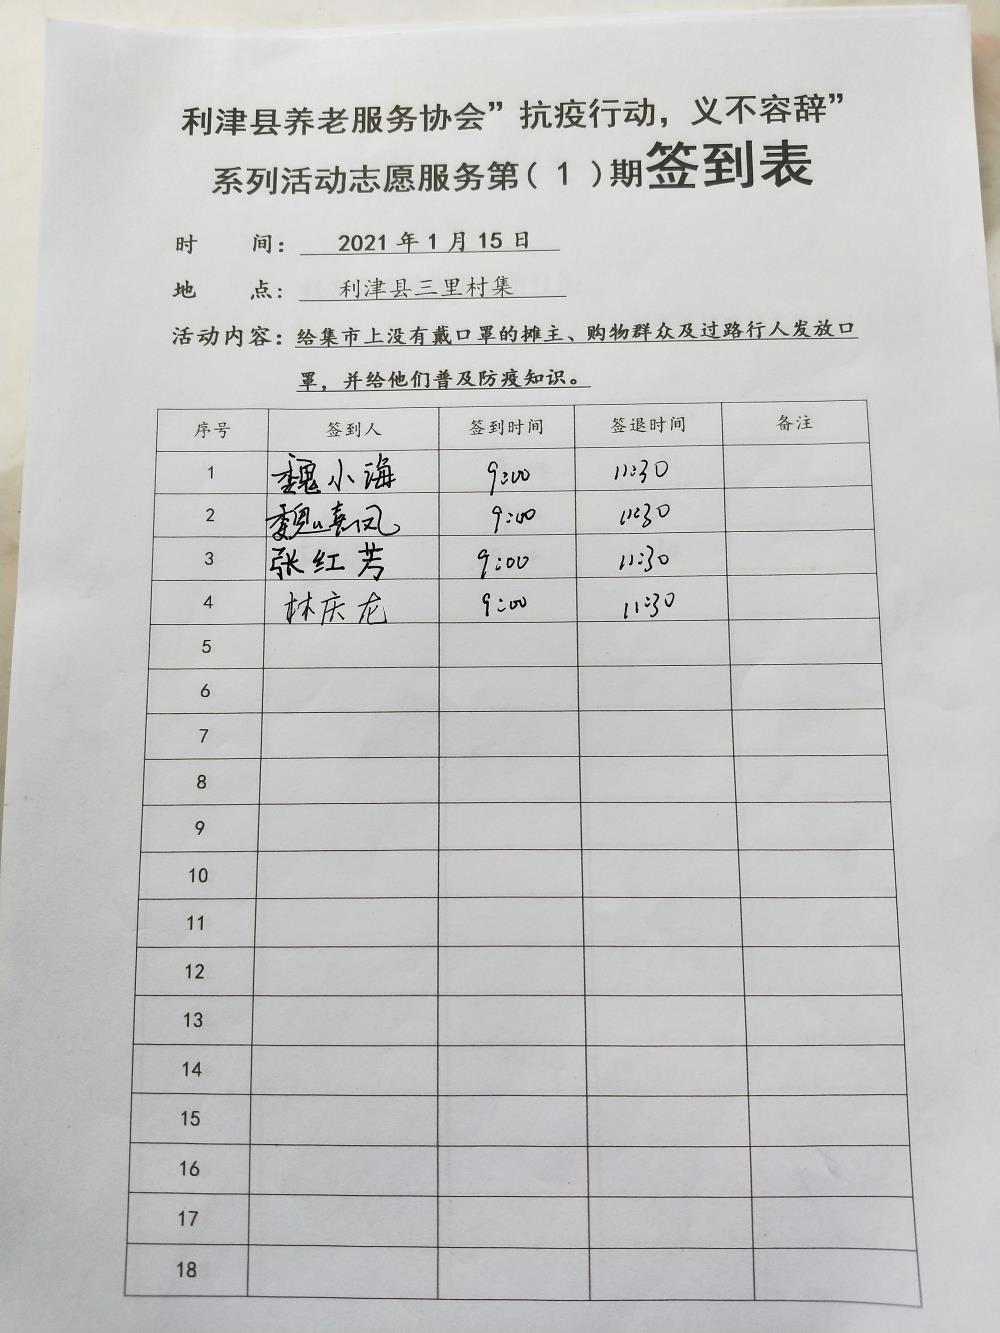 利津县养老服务协会”抗疫行动，义不容辞”
系列活动志愿服务第（ 1 ）期签到表
时 间： 2021 年 1 月 15 日
地 点： 利津县三里村集
活动内容：给集市上没有戴口罩的摊主、购物群众及过路行人发放口
罩，并给他们普及防疫知识。
序号 签到人 签到时间 签退时间 备注
1 魏小海 9:00 11:30
2 魏喜凤 9:00 11:30
3 张红芳 9:00 11:30
4 林庆龙 9:00 11:30
5
6
7
8
9
10
11
12
13
14
15
16
17
18